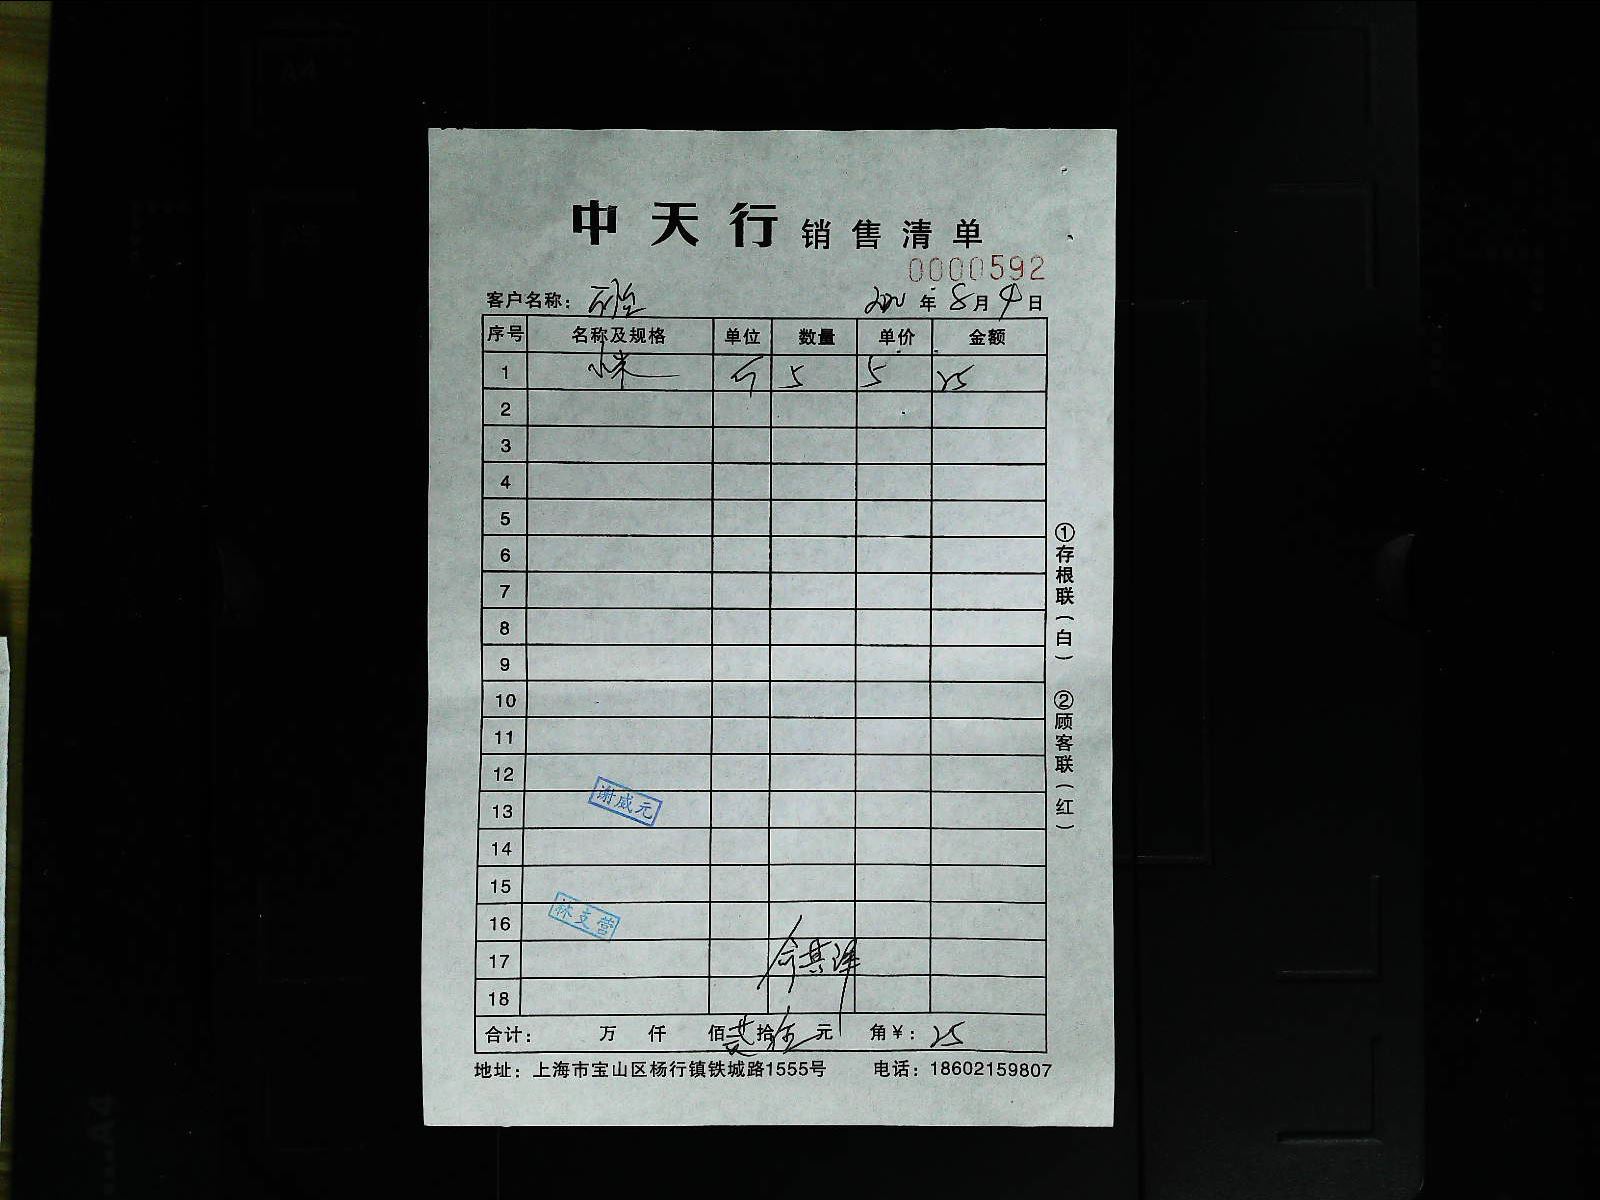 中天行 销售清单
0000592
客户名称：
年 8 月 9 日
序号 名称及规格 单位 数量 单价 金额
1 小米 斤 5 5 25
2
3
4
5
6
7
8
9
10
11
12
谢威元
13
14
15
林支营
16
17
18
合计： 万 仟 佰 贰 拾 伍 元 角 ¥：25
地址：上海市宝山区杨行镇铁城路1555号 电话：18602159807
①存根联（白） ②顾客联（红）